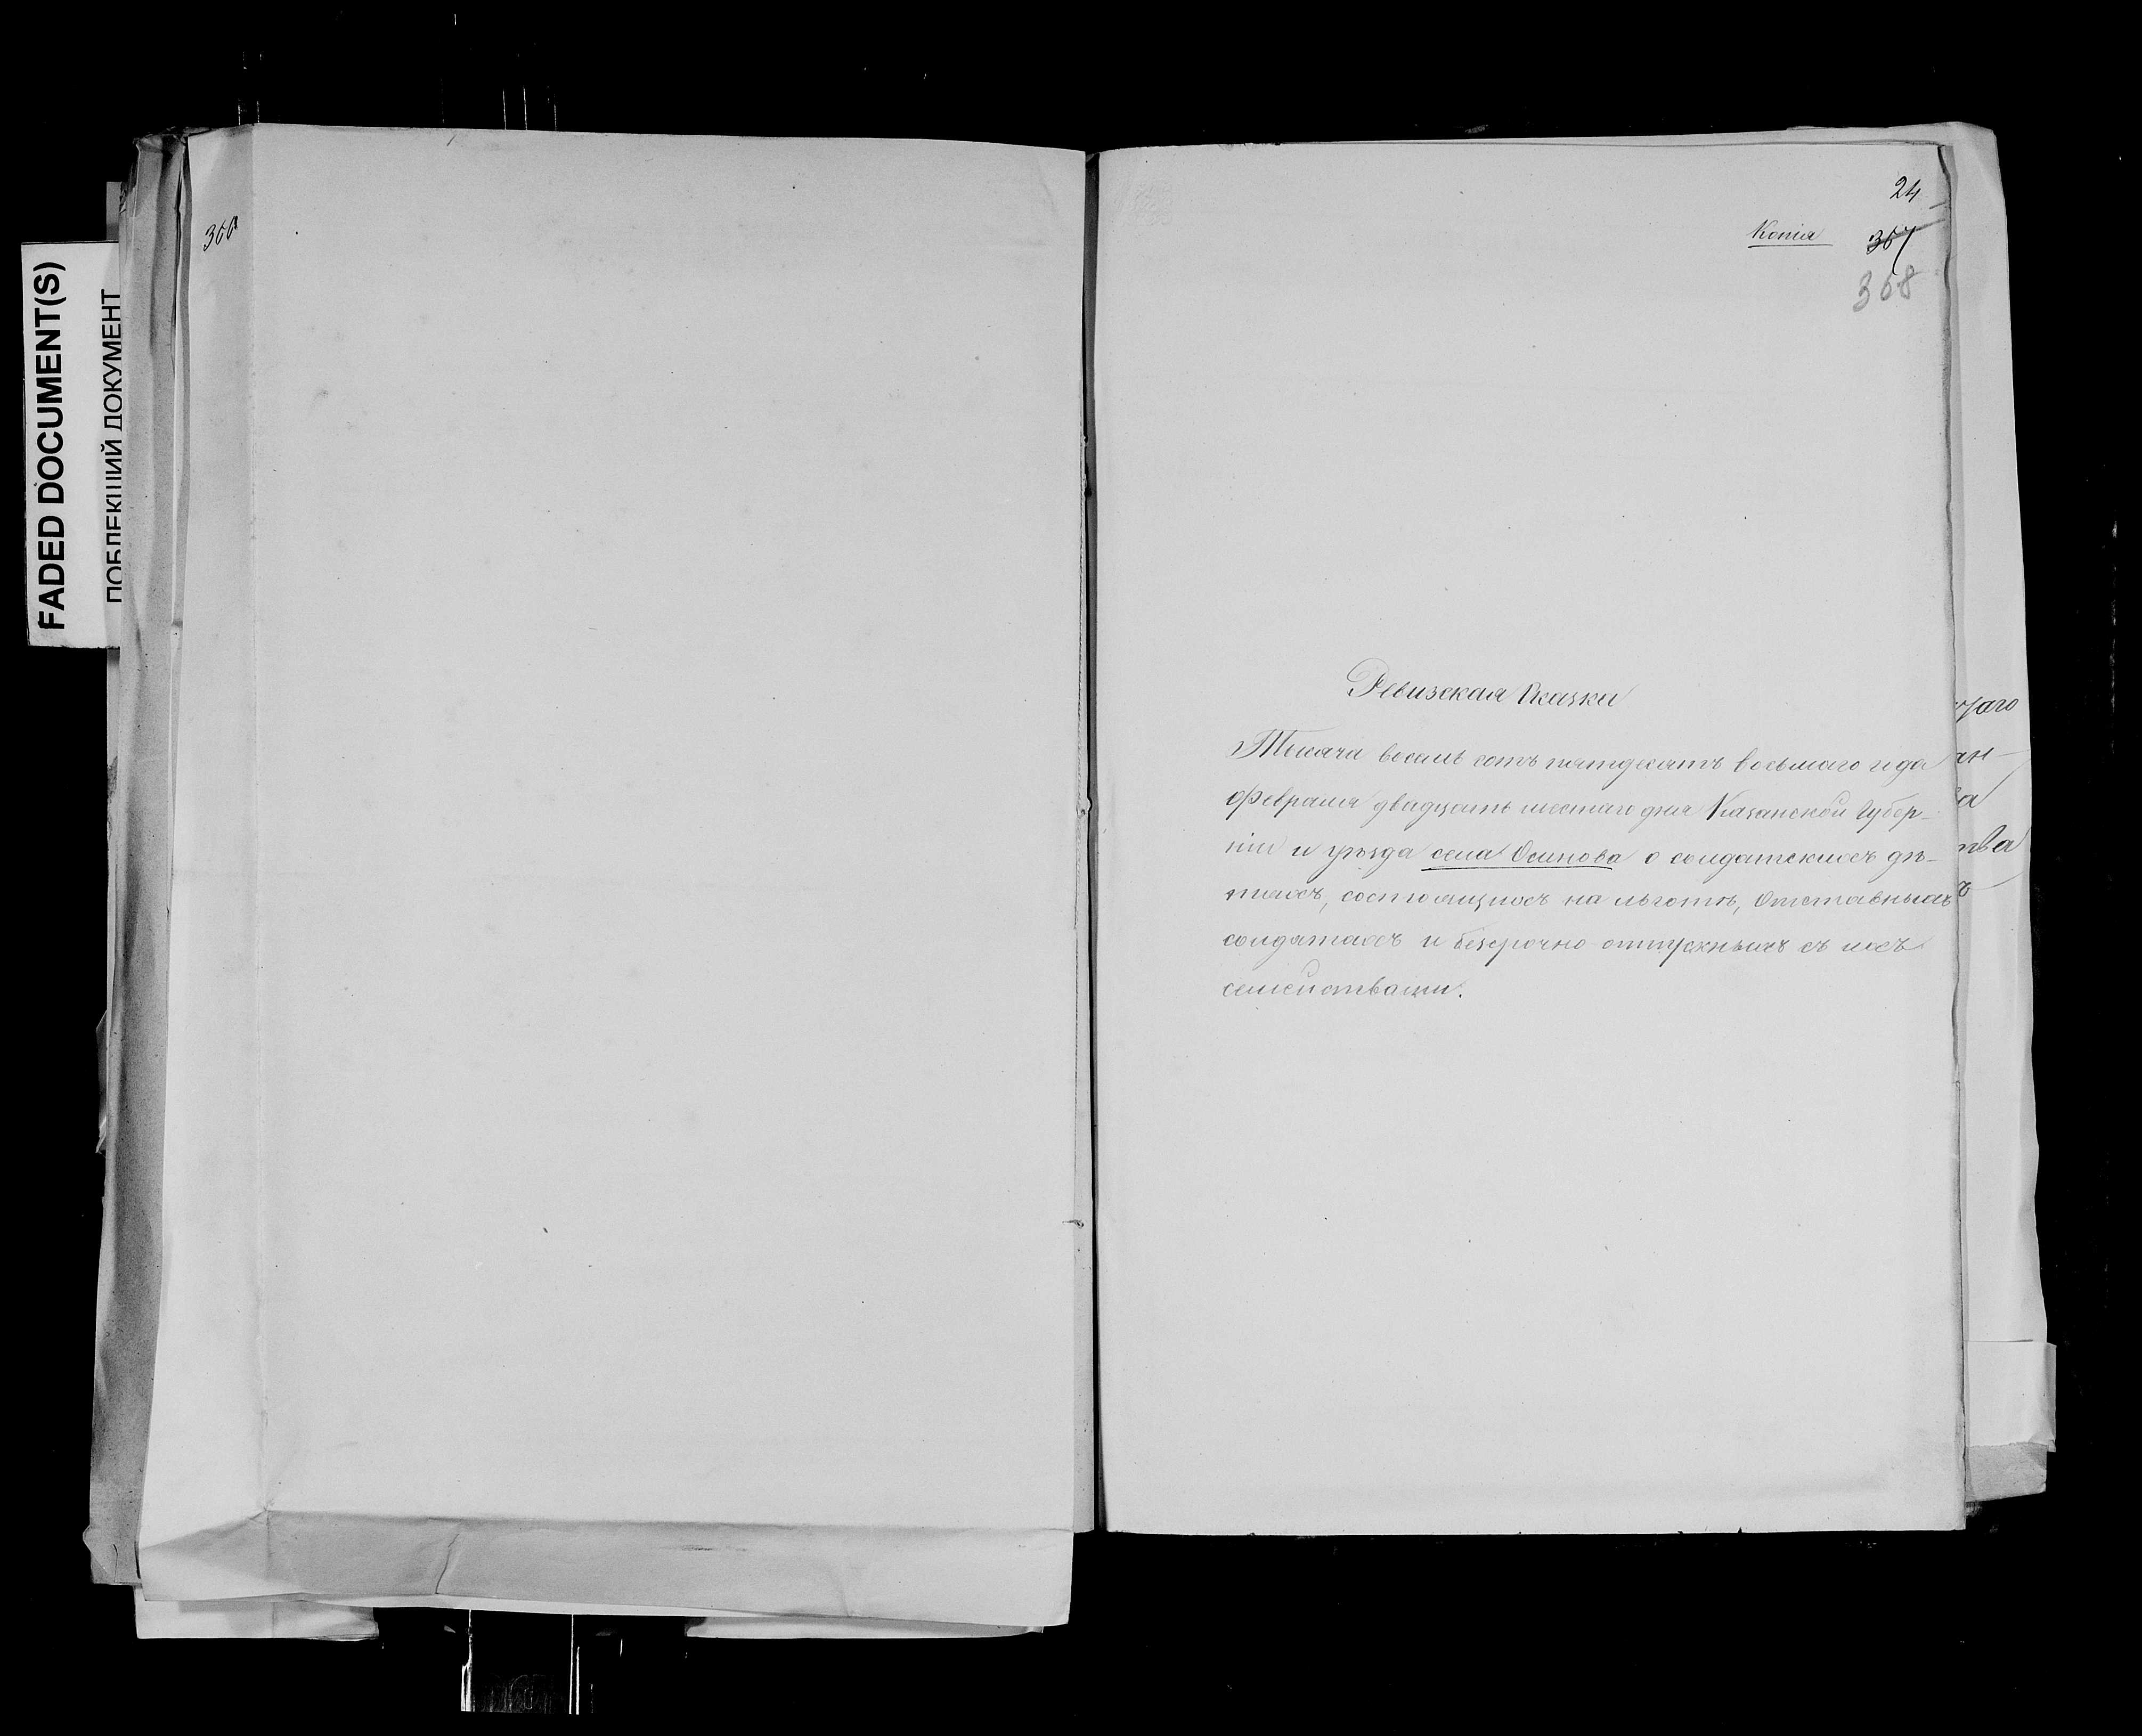 FADED DOCUMENT(S)
ПОБЛЕКШИЙ ДОКУМЕНТ
366
24
Копія 367
368
Ревизская Сказка
Тысяча восемь сотъ пятдесятъ восьмаго года
февраля двадцать шестаго дня Казанской Губер-
ніи и уѣзда села Осинова о солдатскихъ дѣ-
тяхъ, состоящихъ на льготѣ, Отставныхъ
солдатахъ и безсрочно отпускныхъ съ ихъ
семействами.